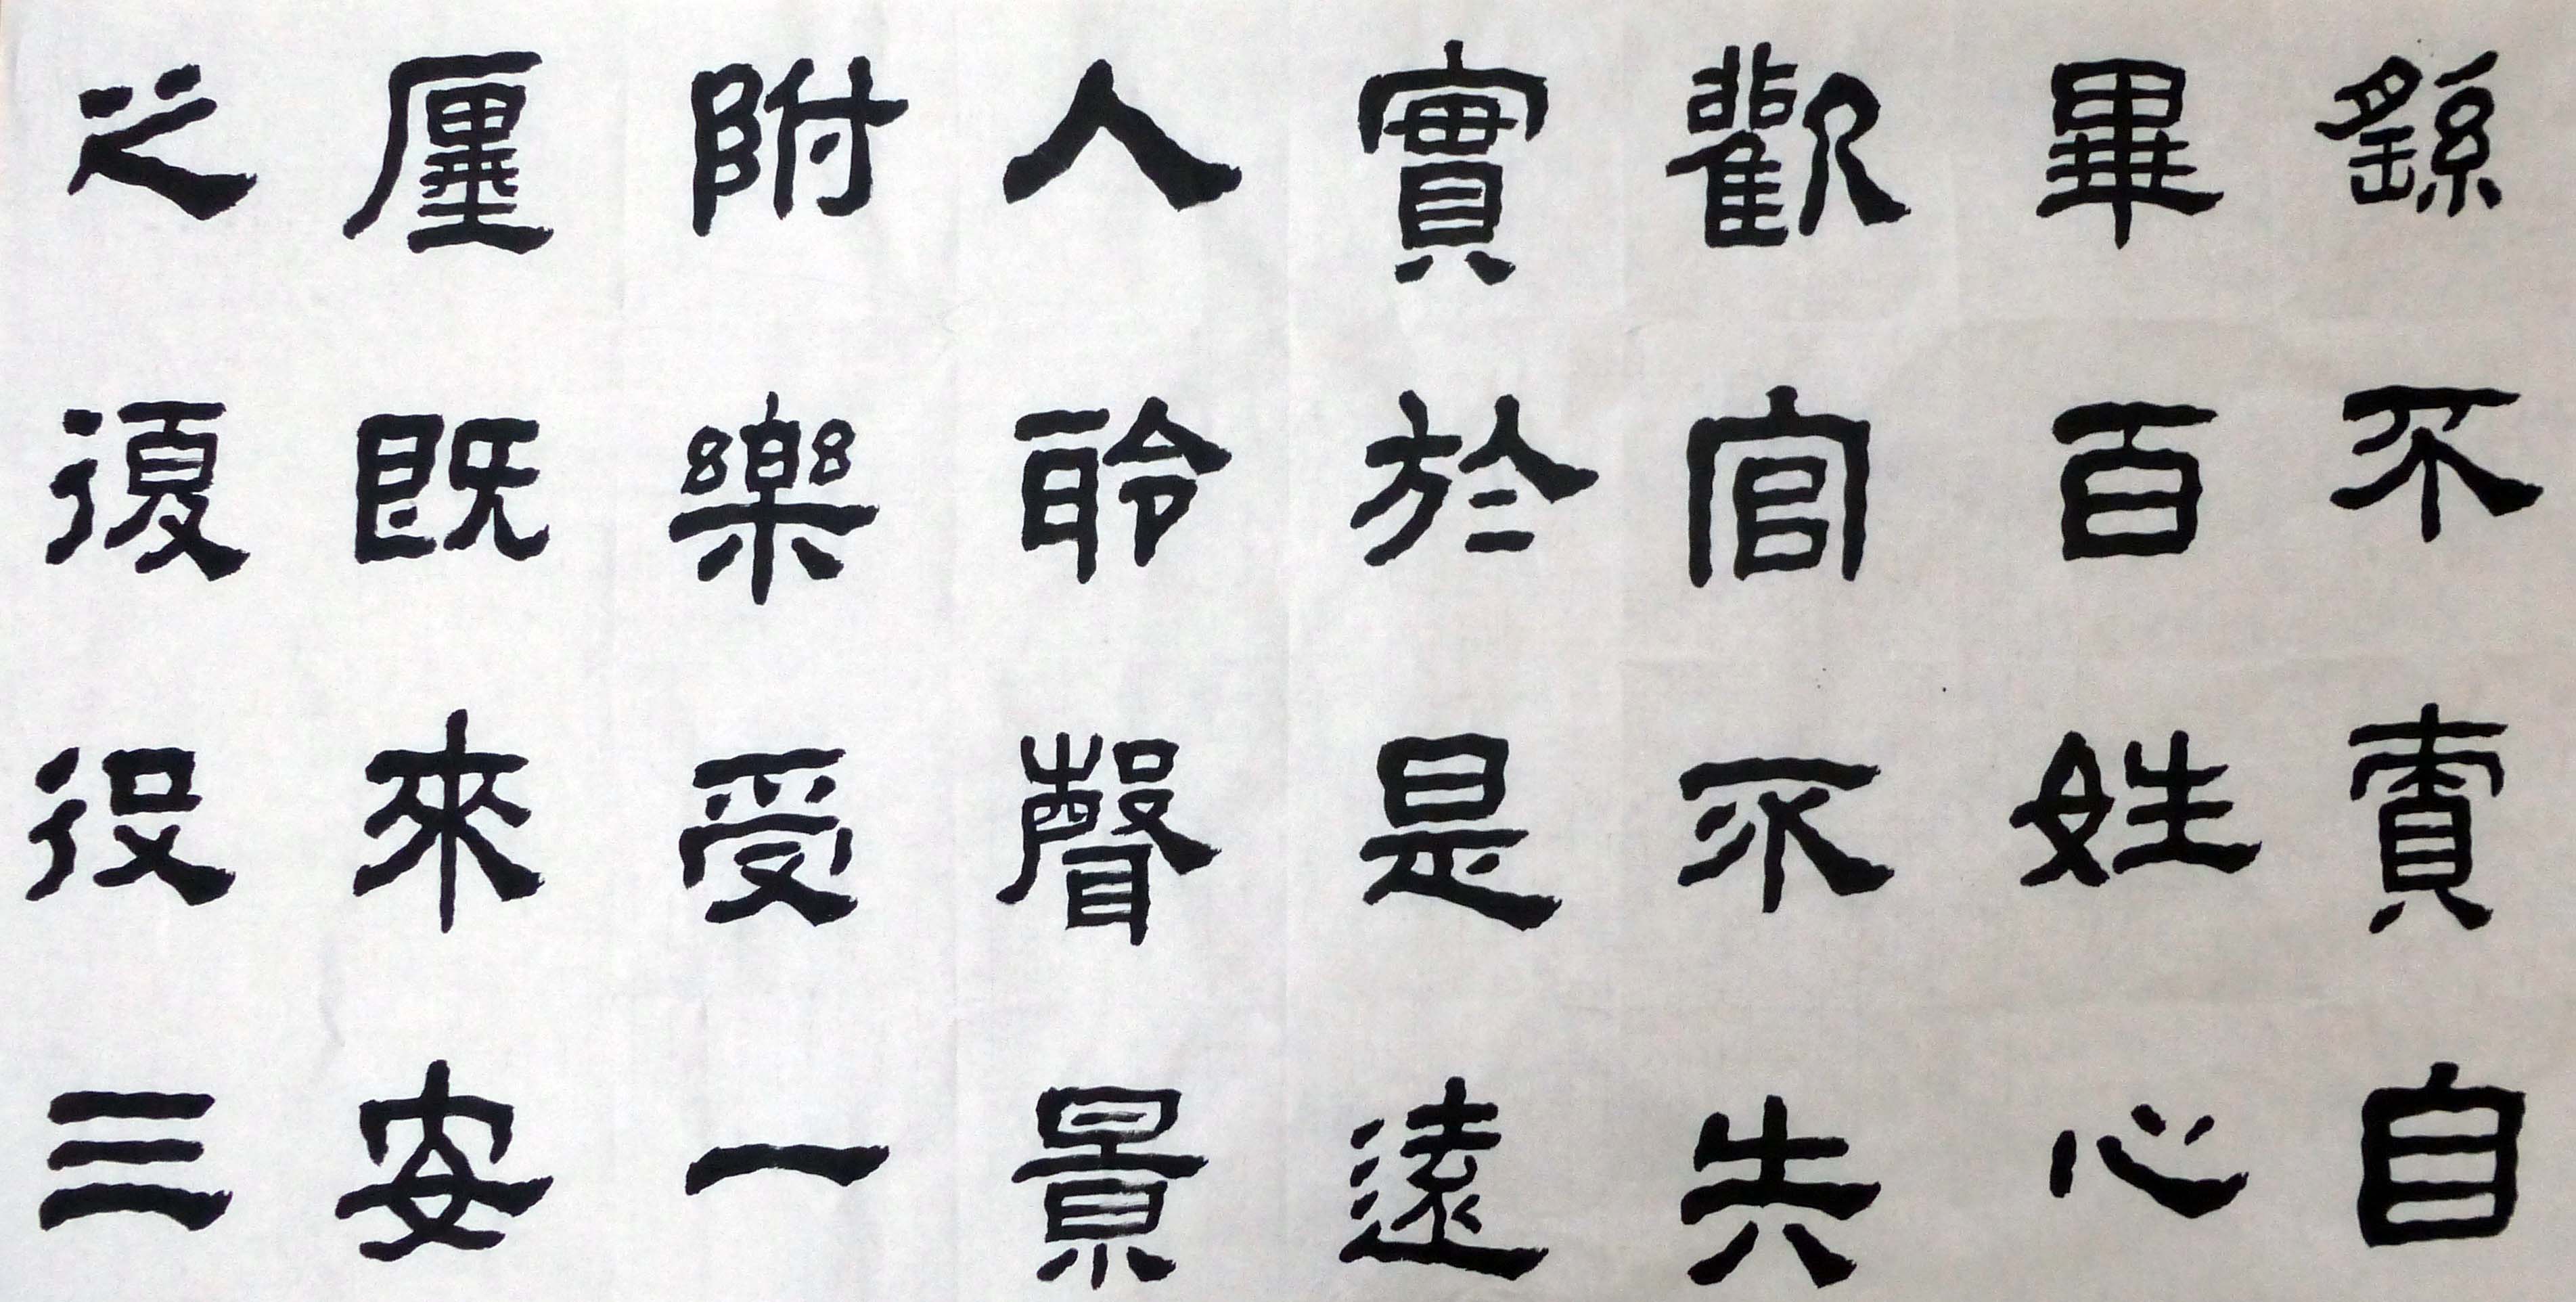 繇不責自
畢百姓心
歡官不失
實於是遠
人聆聲景
附樂受一
廛既來安
之復役三